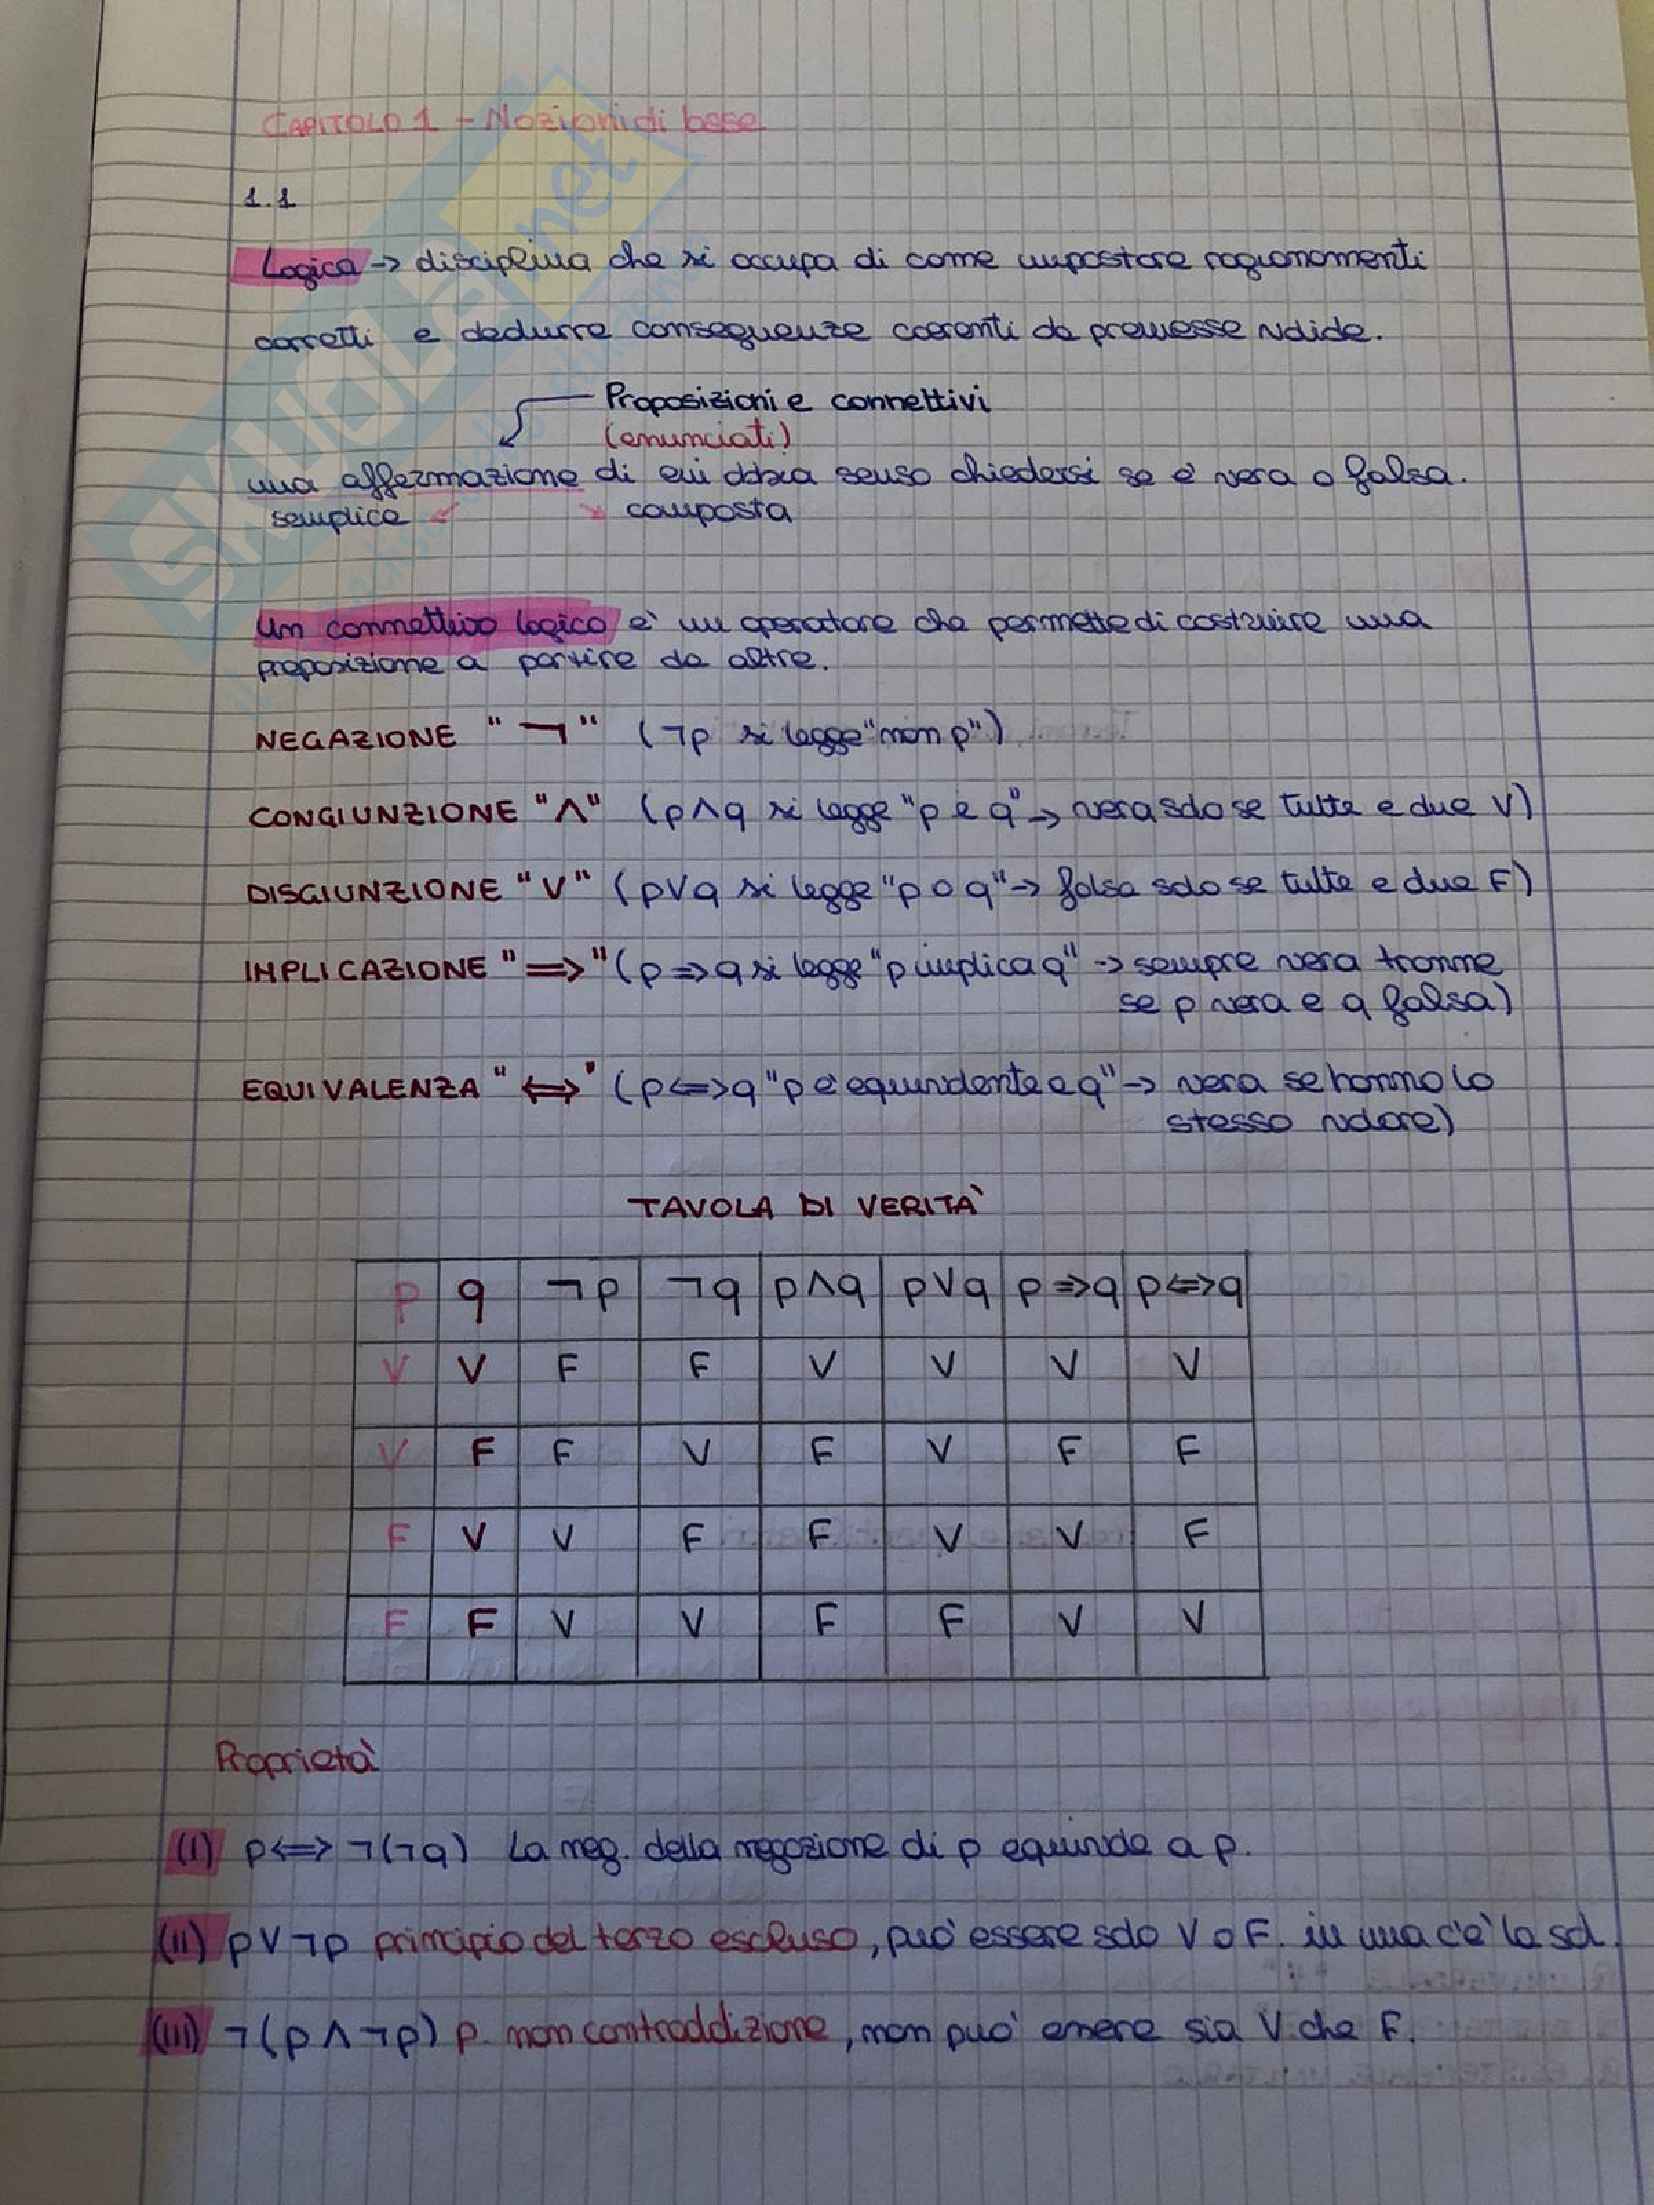 CAPITOLO 1 - Nozioni di base
1.1
Logica → disciplina che si occupa di come impostare ragionamenti
corretti e dedurre conseguenze coerenti da premesse valide.
Proposizioni e connettivi
(enunciati)
una affermazione di cui abbia senso chiedersi se è vera o falsa.
semplice composta
Un connettivo logico è un operatore che permette di costruire una
proposizione a partire da altre.
NEGAZIONE "¬" (¬p si legge "non p")
CONGIUNZIONE "∧" (p∧q si legge "p e q" → vera solo se tutte e due V)
DISGIUNZIONE "V" (p∨q si legge "p o q" → falsa solo se tutte e due F)
IMPLICAZIONE "⇒" (p ⇒ q si legge "p implica q" → sempre vera tranne
se p vera e q falsa)
EQUIVALENZA "⇔" (p⇔q "p è equivalente a q" → vera se hanno lo
stesso valore)
TAVOLA DI VERITÀ
p q ¬p ¬q p∧q p∨q p⇒q p⇔q
V V F F V V V V
V F F V F V F F
F V V F F V V F
F F V V F F V V
Proprietà
(I) p⇔ ¬(¬q) La neg. della negazione di p equivale a p.
(II) p∨¬p principio del terzo escluso, può essere solo V o F. in una c'è la sol.
(III) ¬(p∧¬p) p. non contraddizione, non può essere sia V che F.
SKUOLA.net